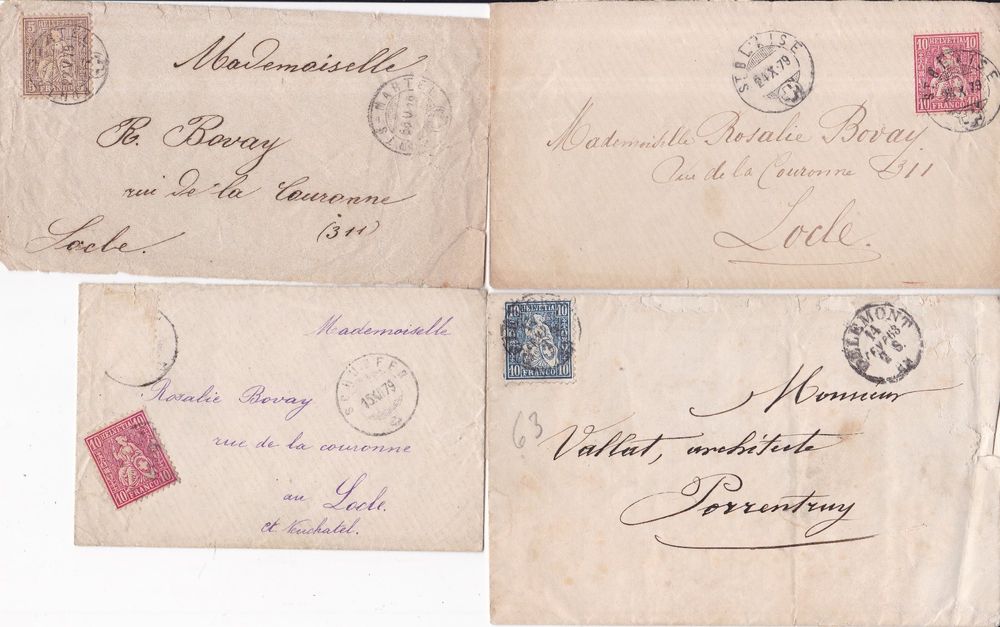 5 HELVETIA 5
FRANCO
22 V 79
Mademoiselle
PTS-MARTEL
R. Bovay
rue de la Couronne
(311)
Locle.
ST BLAISE
24 X 79
10 HELVETIA 10
10 FRANCO 10
ST BLAISE
X 79
Mademoiselle Rosalie Bovay
Rue de la Couronne 311
Locle.
Mademoiselle
79
Rosalie Bovay
10 HELVETIA 10
10 FRANCO 10
rue de la couronne
au Locle.
ct Neuchatel.
10 HELVETIA 10
10 FRANCO 10
DELEMONT
14
63
63
Monsieur
Vallat, architecte
Porrentruy